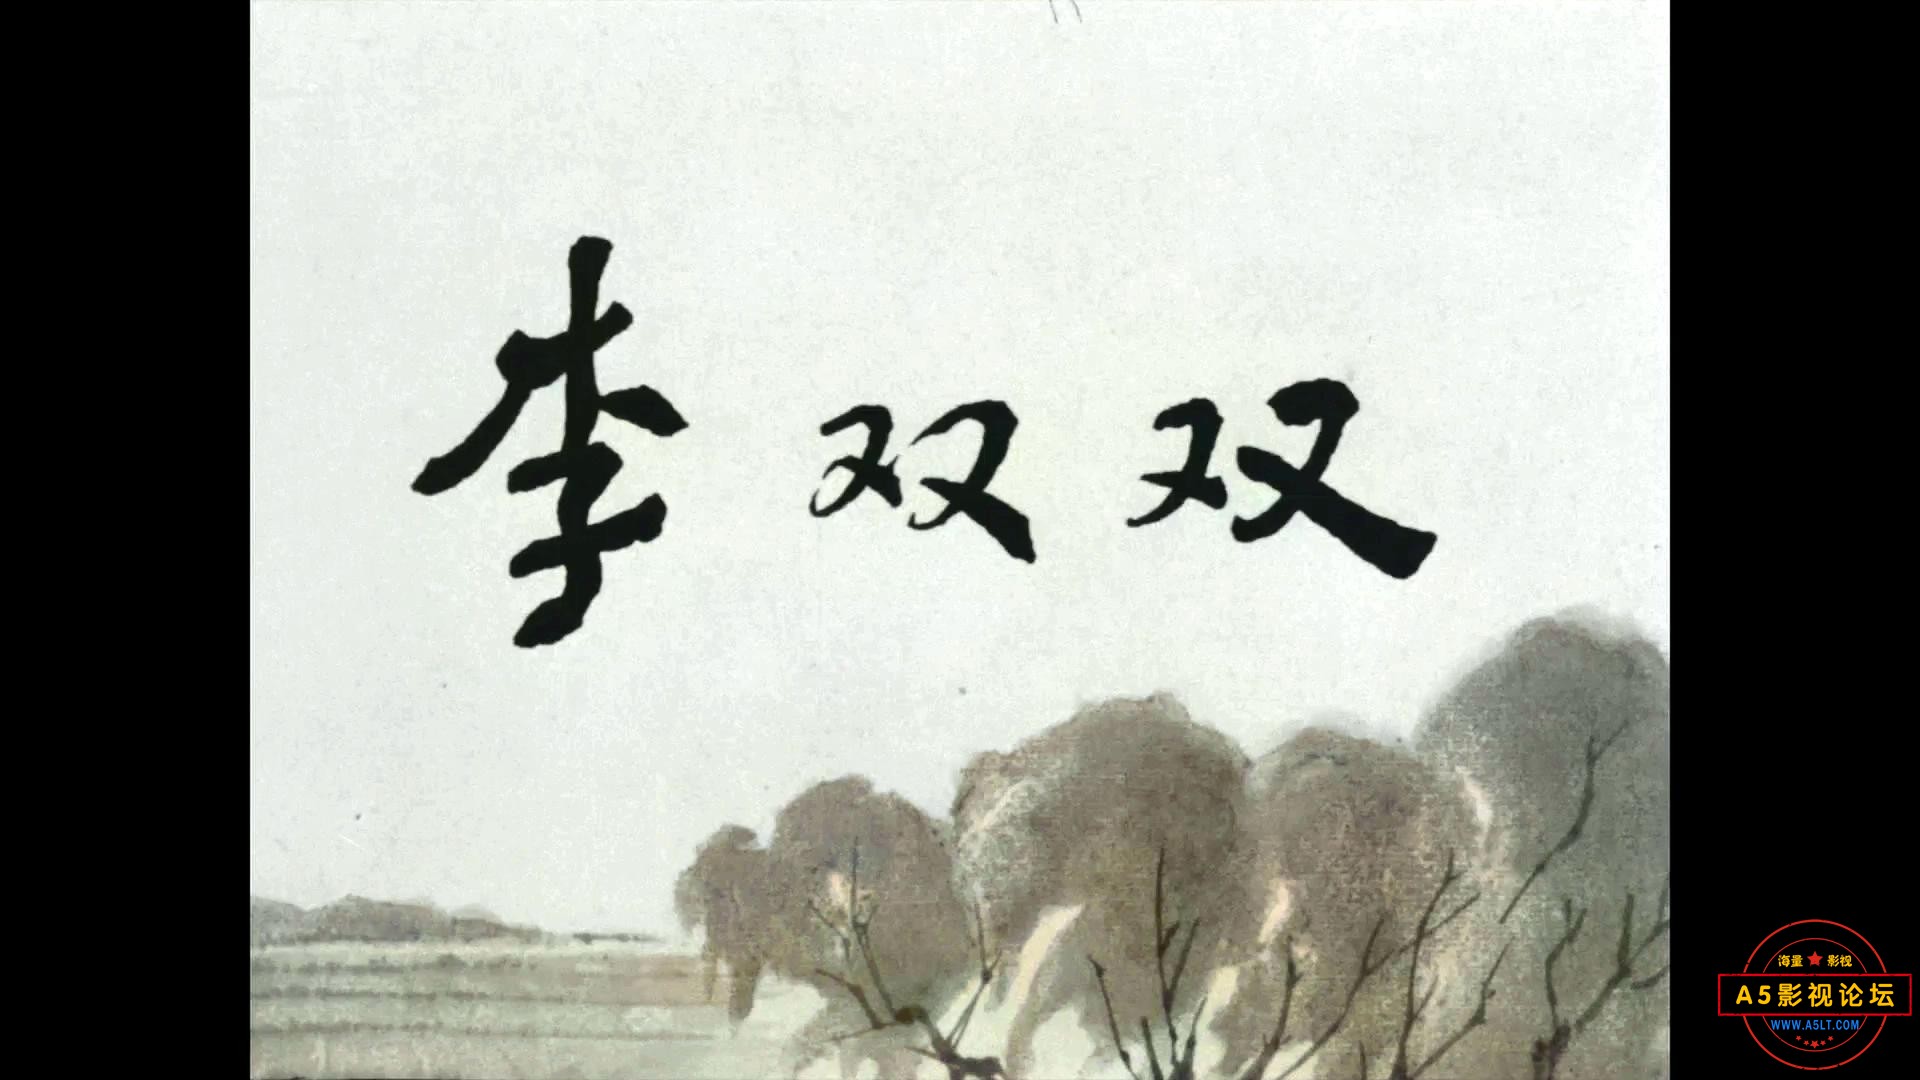 李双双
海量 影视
A5影视论坛
WWW.A5LT.COM